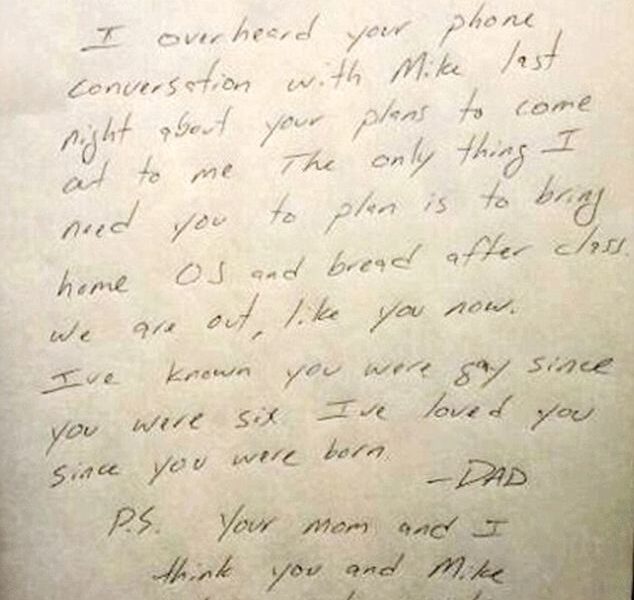 I overheard your phone
conversation with Mike last
night about your plans to come
out to me The only thing I
need you to plan is to bring
home OJ and bread after class.
We are out, like you now.
I've known you were gay since
you were six I've loved you
since you were born
- DAD
P.S. Your mom and I
think you and Mike